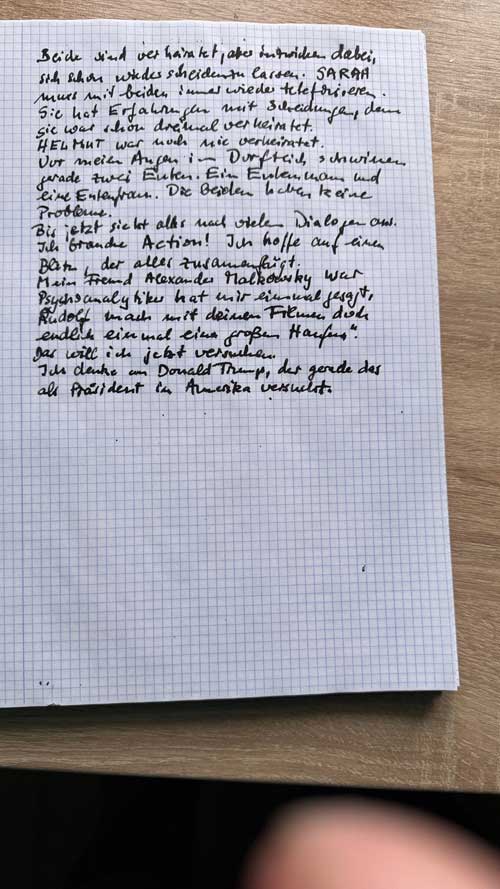 Beide sind verheiratet, aber inzwischen dabei,
sich schon wieder scheiden zu lassen. SARAH
muss mit beiden immer wieder telefonieren.
Sie hat Erfahrungen mit Scheidungen, denn
sie war schon dreimal verheiratet.
HELMUT war noch nie verheiratet.
Vor meinen Augen im Dorfteich schwimmen
gerade zwei Enten. Ein Entenmann und
eine Entenfrau. Die beiden haben keine
Probleme.
Bis jetzt sieht alles nach vielen Dialogen aus.
Ich brauche Action! Ich hoffe auf einen
Blitz, der alles zusammenfügt.
Mein Freund Alexander Malkowsky war
Psychoanalytiker hat mir einmal gesagt,
"Rudolf mach mit deinen Filmen doch
endlich einmal einen großen Haufen".
Das will ich jetzt versuchen.
Ich denke an Donald Trump, der gerade das
als Präsident in Amerika versucht.